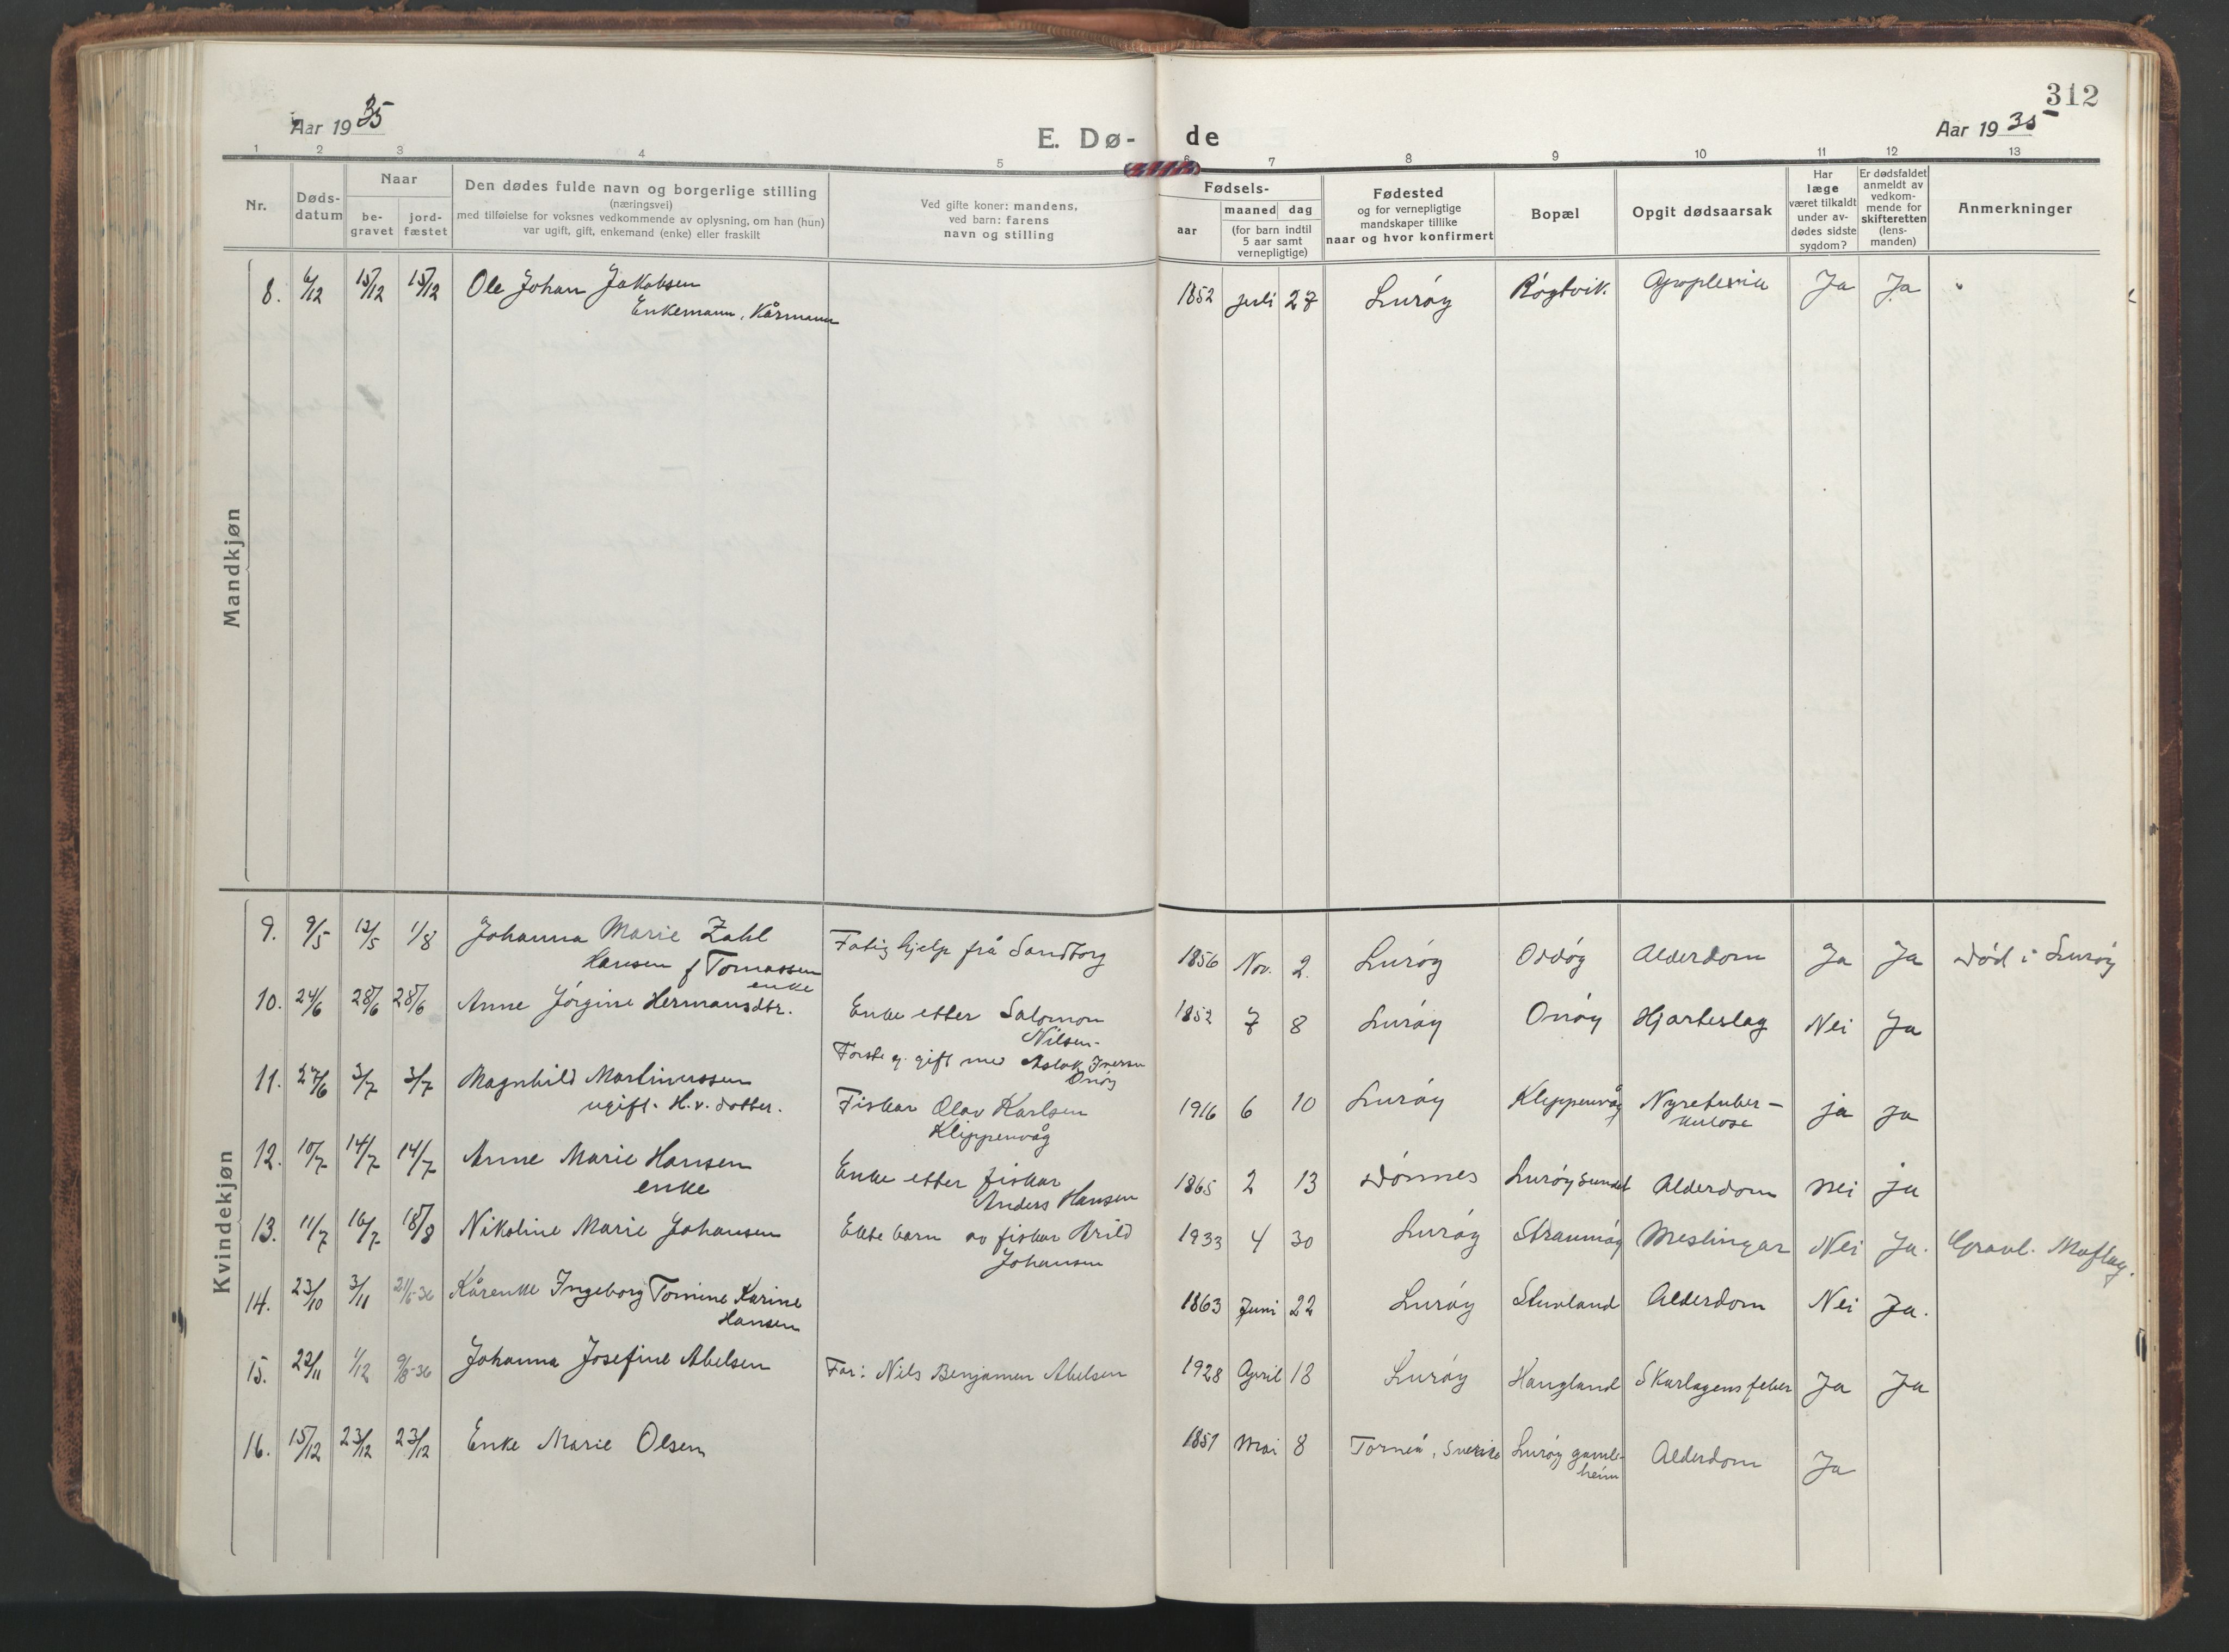 312
Aar 1935
E. Dø-
de
Aar 1935
1 2 3 4 5 6 7 8 9 10 11 12 13
Nr.
Døds-
datum
Naar
be-
gravet
jord-
fæstet
Den dødes fulde navn og borgerlige stilling
(næringsvei)
med tilføielse for voksnes vedkommende av oplysning, om han (hun)
var ugift, gift, enkemand (enke) eller fraskilt
Ved gifte koner: mandens,
ved barn: farens
navn og stilling
Fødsels-
aar
maaned dag
(for barn indtil
5 aar samt
vernepligtige)
Fødested
og for vernepligtige
mandskaper tillike
naar og hvor konfirmert
Bopæl
Opgit dødsaarsak
Har
læge
været tilkaldt
under av-
dødes sidste
sygdom?
Er dødsfaldet
anmeldt av
vedkom-
mende for
skifteretten
(lens-
manden)
Anmerkninger
Mandkjøn
8. 6/12 15/12 15/12 Ole Johan Jakobsen
Enkemann, Kårmann
1852 juli 27 Lurøy Røgtvik Apoplexia Ja Ja
Kvindekjøn
9. 9/5 12/5 1/8 Johanna Marie Zahl
Hansen f Tomassen
enke
Fatig hjelp frå Sandtorg
1856 Nov. 2. Lurøy Ordøy Alderdom Ja Ja Død i Lurøy
10. 24/6 28/6 28/6 Anne Jørgine Hermansdtr.
Enke etter Salomon
Nilsen-
Første g. gift med Aslak Iversen
Onøy
1852 7 8 Lurøy Onøy Hjarteslag Nei Ja
11. 27/6 3/7 3/7 Magnhild Martinussen
ugift. H.v. dotter.
Fiskar Olav Karlsen
Klippenvåg
1916 6 10 Lurøy Klippenvåg Nyretuber-
kulose
ja ja
12. 10/7 14/7 14/7 Anne Marie Hansen
enke
Enke etter fiskar
Anders Hansen
1865 2 13 Dønnes Lurøysundet Alderdom nei ja
13. 11/7 16/7 18/8 Nikoline Marie Johansen
Ekte barn av fiskar Arild
Johansen
1933 4 30 Lurøy Straumøy Meslingar Nei Ja. Gravl.
14. 23/10 3/11 21/5-36 Kårenke Ingeborg Tomine Karine
Hansen
1863 Juni 22 Lurøy Stuvland Alderdom Nei Ja.
15. 22/11 1/12 9/8-36 Johanna Josefine Abelsen
Far: Nils Benjamin Abelsen
1928 April 18 Lurøy Haugland Skarlagensfeber Ja Ja
16. 15/12 23/12 23/12 Enke Marie Olsen
1851 Mai 8 Torneå, Sverike Lurøy gamle-
heim
Alderdom Ja